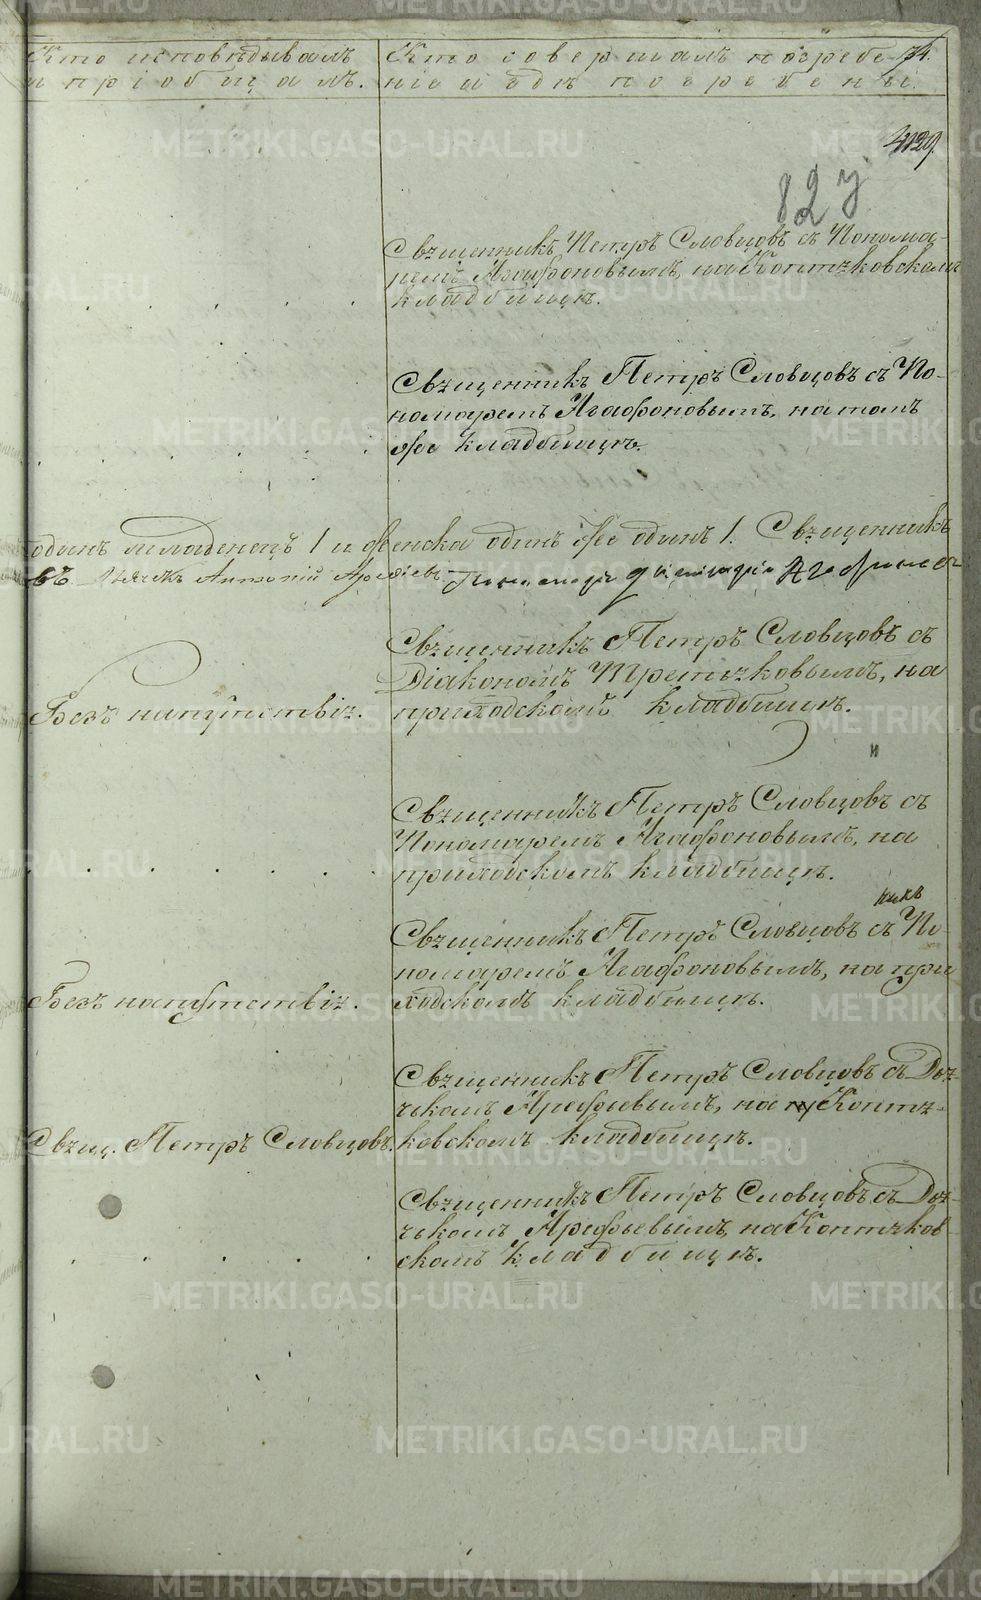 Кто исповѣдывалъ
и пріобщалъ.
Кто совершалъ погребе-
ніе и гдѣ погребены.
74.
82
Священникъ Петръ Словцовъ съ Понома-
ремъ Агафоновымъ, на Коптяковскомъ
кладбищѣ.
Священникъ Петръ Словцовъ съ По-
номаремъ Агафоновымъ, на томъ
же кладбищѣ.
одинъ младенецъ 1 и женска одинъ же одинъ 1. Священникъ
въ. Дьячекъ Антоній Арефьевъ.
Священникъ Петръ Словцовъ съ
Діакономъ Третьяковымъ, на
Безъ напутствія.
приходскомъ кладбищѣ.
Священникъ Петръ Словцовъ съ
Пономаремъ Агафоновымъ, на
приходскомъ кладбищѣ.
Священникъ Петръ Словцовъ съ По-
номаремъ Агафоновымъ, на при
Безъ напутствія.
ходскомъ кладбищѣ.
Священникъ Петръ Словцовъ съ Дья-
чкомъ Арефьевымъ, на Коптя-
Свящ. Петръ Словцовъ.
ковскомъ кладбищѣ.
Священникъ Петръ Словцовъ съ Дья-
чкомъ Арефьевымъ, на Коптяков-
скомъ кладбищѣ.
METRIKI.GASO-URAL.RU